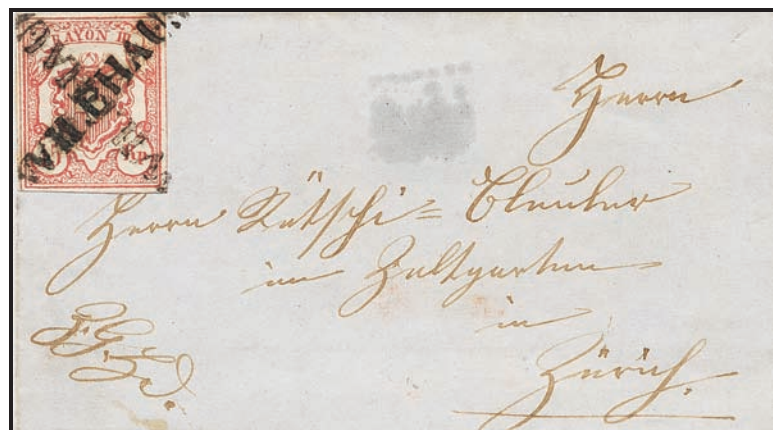 RAYON III
Herrn
Herrn Rütschi = Bleuler
im Zeltgarten
in
Zürich.